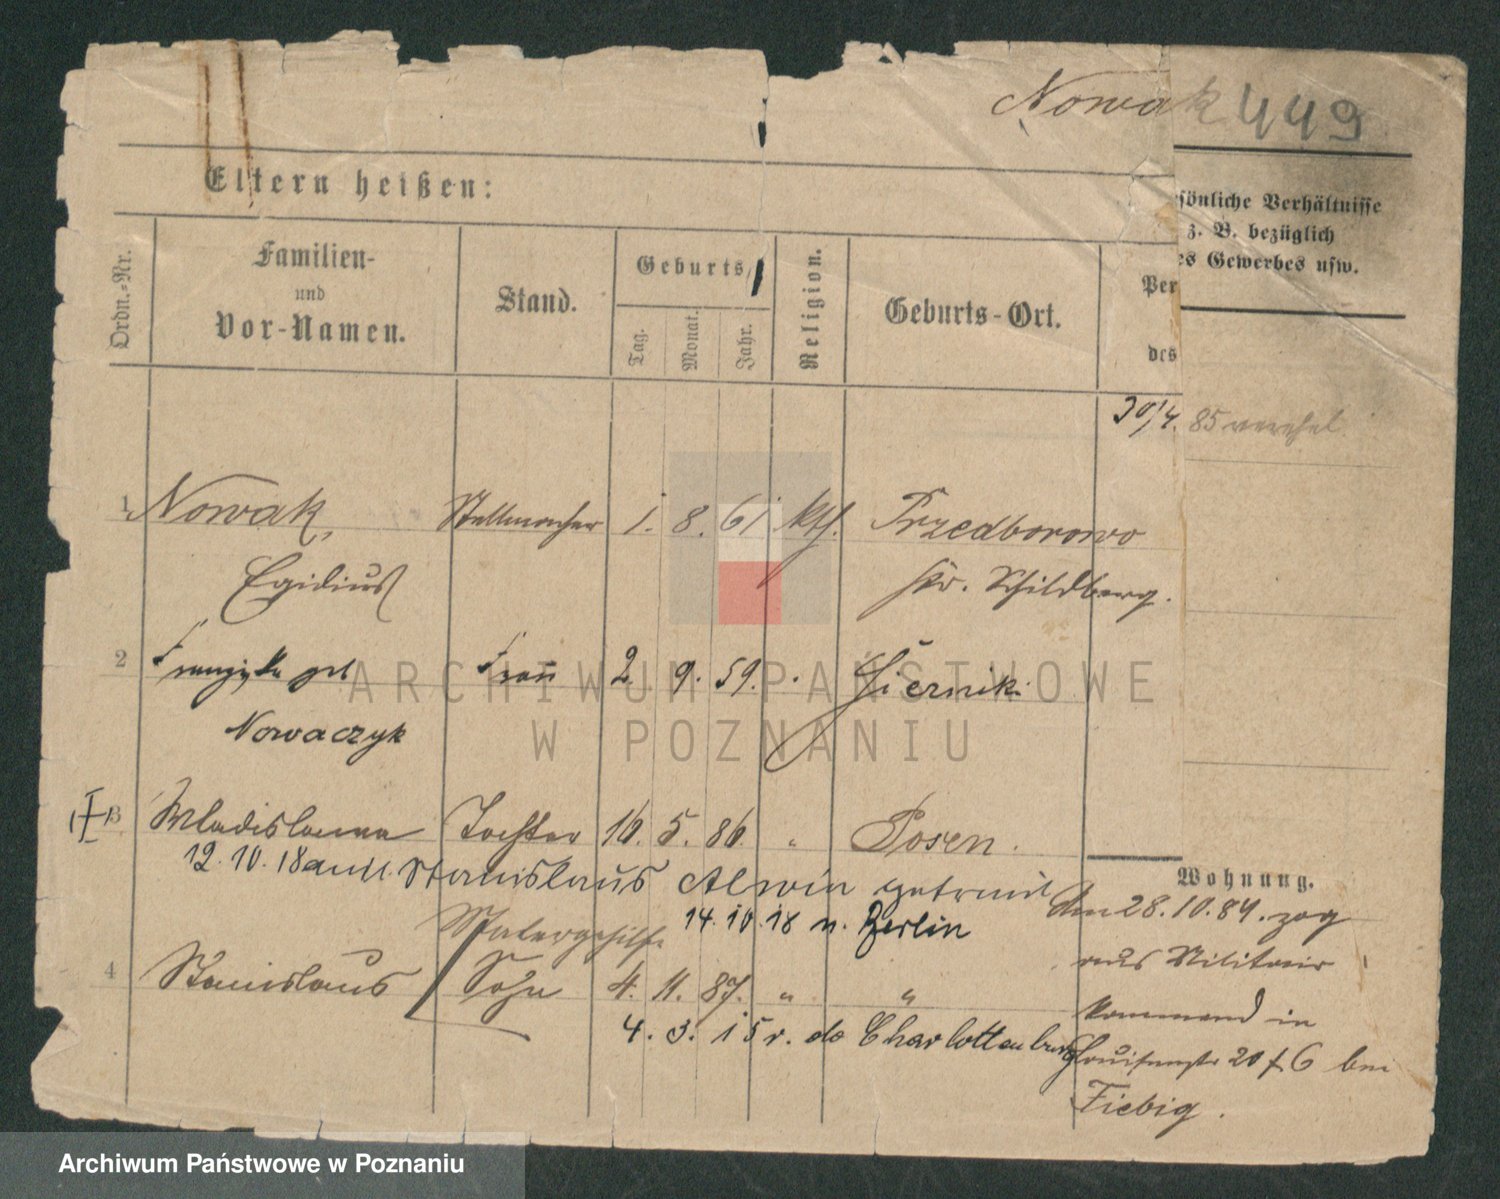 Nowak 449
Eltern heißen:
sönliche Verhältnisse
z. B. bezüglich
es Gewerbes usw.
Ordn.-Nr.
Familien-
und
Vor-Namen.
Stand.
Geburts
Tag.
Monat.
Jahr.
Religion.
Geburts-Ort.
Per
des
30/4. 85 verehel.
1 Nowak, Stellmacher 1. 8. 61 kth. Przedborowo
Egidius Kr. Schildberg.
2 Franziska geb Frau 2. 9. 59. Siernik
Nowaczyk
3 Wladislawa Tochter 16. 5. 86. " Posen.
12. 10. 18 Stanislaus Alwin getrennt
14. 10. 18 n. Berlin
Malergehilfe
4 Stanislaus Sohn 4. 11. 87. " "
4. 3. 15 v. do Charlottenburg
Wohnung.
Am 28. 10. 84. zog
aus Militair
Kommand in
Louisenstr 20 f. 6 bei
Fiebig.
ARCHIWUM PAŃSTWOWE
W POZNANIU
Archiwum Państwowe w Poznaniu